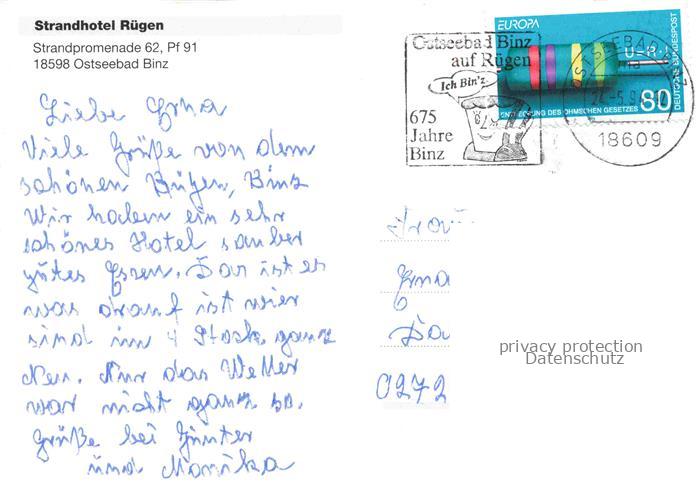 Strandhotel Rügen
Strandpromenade 62, Pf 91
18598 Ostseebad Binz
Liebe Erna
Viele Grüße von dem
schönen Rügen, Binz
Wir haben ein sehr
schönes Hotel sauber
gutes Essen. Das ist es
was drauf ist wier
sind im 4 Stock, ganz
Neu. Nur das Wetter
war nicht ganz so.
Grüße bei Günter
und Monika
Ostseebad Binz
auf Rügen
Ich Bin'z
675
Jahre
Binz
EUROPA
U=R·I
ENTDECKUNG DES OHMSCHEN GESETZES
80
DEUTSCHE BUNDESPOST
OSTSEEBAD
18609
Frau
Erna
Da
0272
privacy protection
Datenschutz